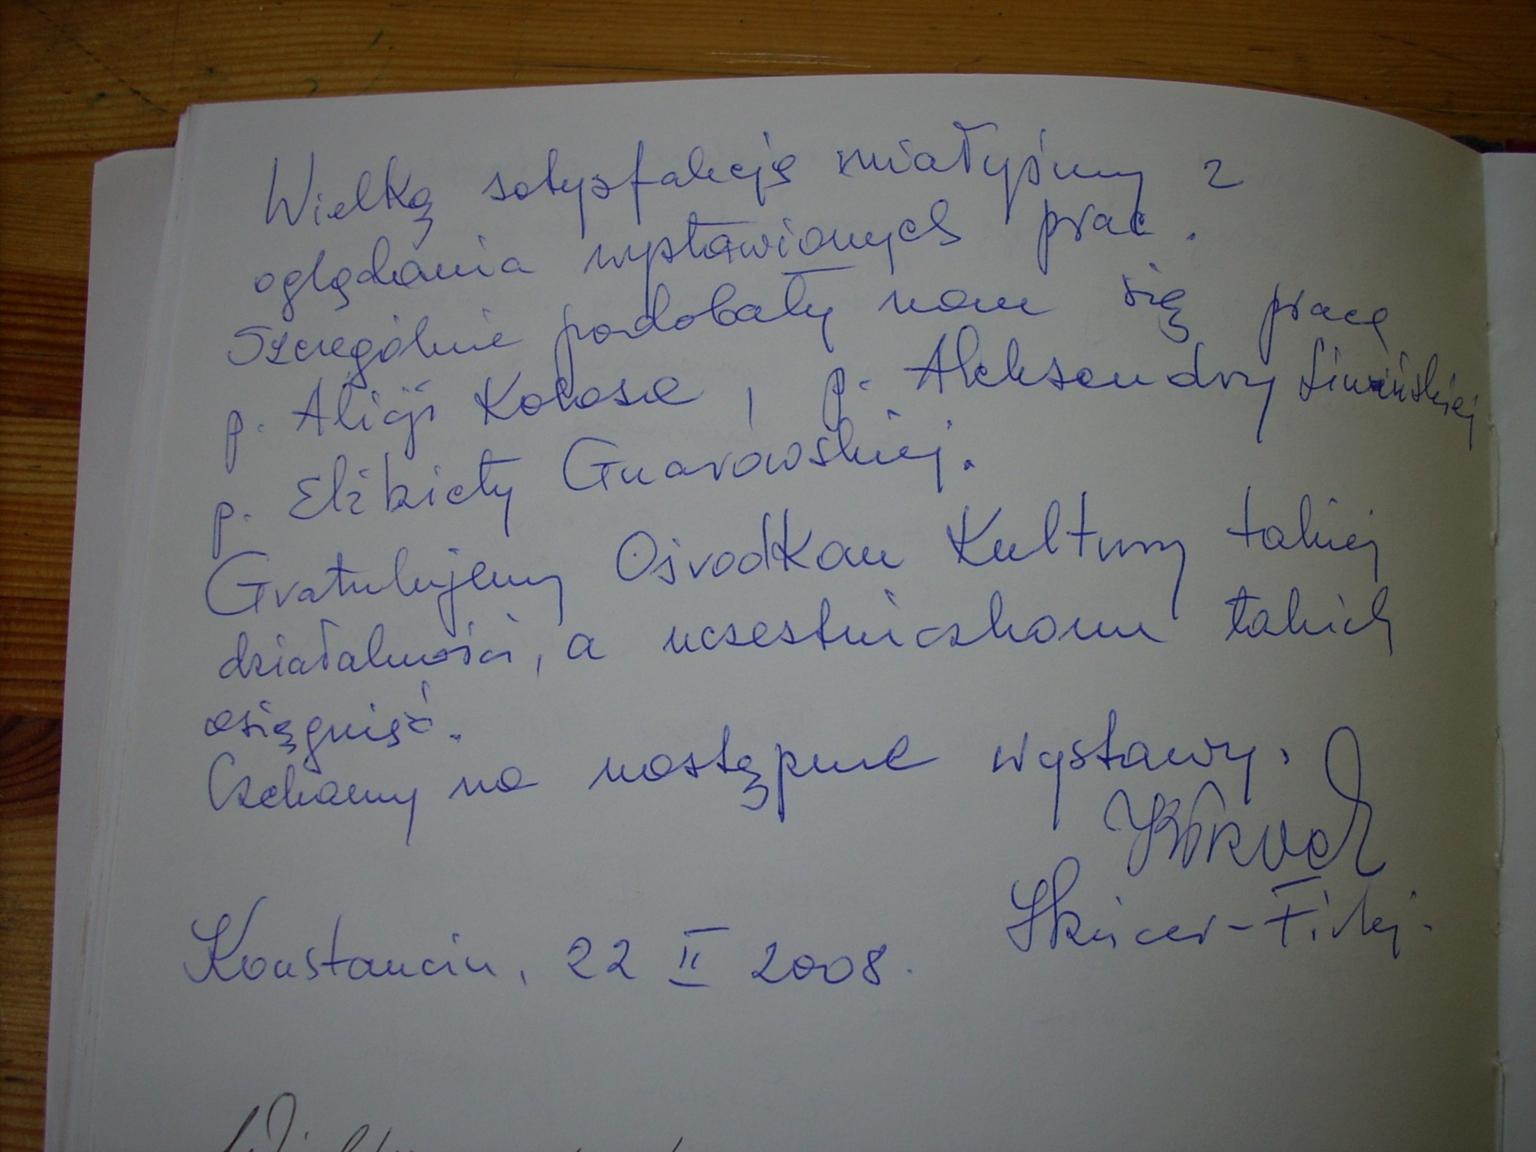 Wielką satysfakcję miałyśmy z
oglądania wystawionych prac.
Szczególnie podobały nam się prace
p. Alicji Kolasa, p. Aleksandry
p. Elżbiety Gnarowskiej.
Gratulujemy Ośrodkom Kultury takiej
działalności, a uczestniczkom takich
osiągnięć.
Czekamy na następne wystawy.
Konstancin, 22 II 2008.